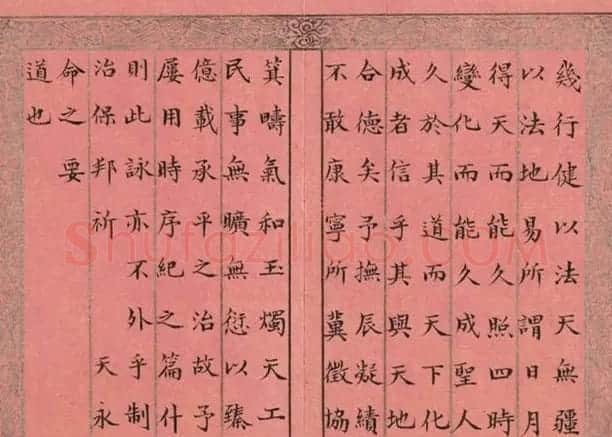 幾行健以法天無疆
以法地易所謂日月
得天而能久照四時
變化而能久成聖人
久於其道而天下化
成者信乎其與天地
合德矣予撫辰凝績
不敢康寧所冀徵協
箕疇氣和玉燭天工
民事無曠無愆以臻
億載承平之治故予
屢用時序紀之篇什
則此詠亦不外乎制
治保邦祈 天永
命之要
道也